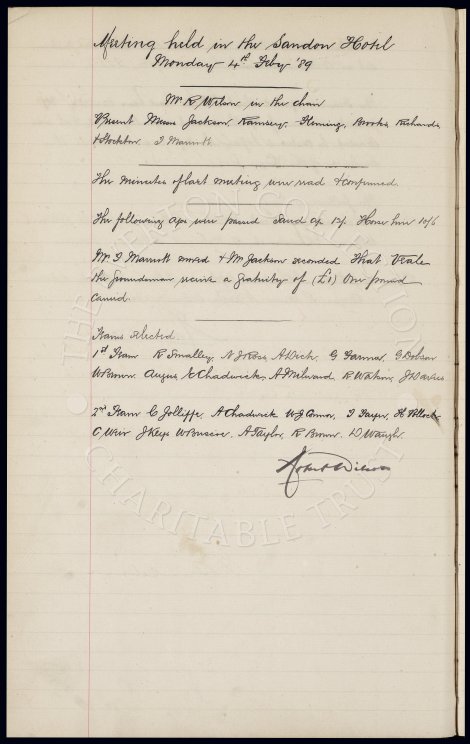 Meeting held in the Sandon Hotel
Monday 4th Feby '89
Mr R Wilson in the chair
Present Messrs Jackson Ramsey, Fleming, Brooks, Richards
& Stockton. T Marriott.
The minutes of last meeting were read & confirmed.
The following a/cs were passed Sand a/c Horse hire 10/6
Mr. T Marriott moved & Mr Jackson seconded That Veale
the Groundsman receive a gratuity of (£1) One pound
carried.
Teams selected.
1st Team R Smalley, N J Ross, A Dick, G Farmer, G Dobson
W Brown Angus, E Chadwick, A Milward R Watson, J Davies
2nd Team C Jolliffe, A Chadwick W J Connor, H Pollock
C Weir J Keys W Briscoe, A Taylor, R Brown. D Waugh.
Robert Wilson
THE EVERTON COLLECTION
CHARITABLE TRUST